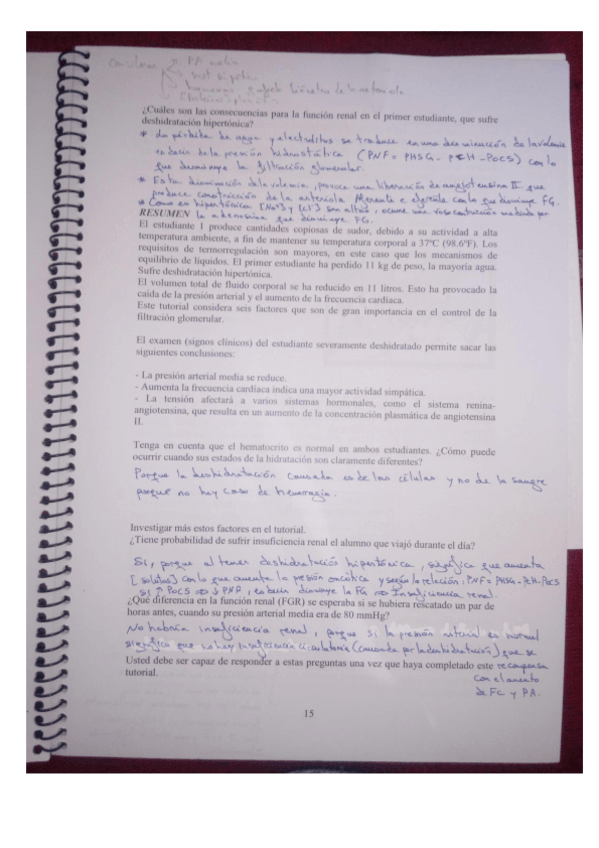 ¿Cuáles son las consecuencias para la función renal en el primer estudiante, que sufre
deshidratación hipertónica?
* La pérdida de agua y electrolitos se traduce en una disminución de la volemia
es decir de la presión hidrostática (PNF = PHSG - PCH - POCS) con lo
que disminuye la filtración glomerular.
* Esta disminución de la volemia, provoca una liberación de angiotensina II que
produce constricción de la arteriola Aferente e eferente con lo que disminuye FG.
* Como en hipertónica [Na+] y [Cl-] son altos, ocurre una vasoconstricción mediada por
RESUMEN la adenosina que disminuye FG.
El estudiante 1 produce cantidades copiosas de sudor, debido a su actividad a alta
temperatura ambiente, a fin de mantener su temperatura corporal a 37ºC (98.6ºF). Los
requisitos de termorregulación son mayores, en este caso que los mecanismos de
equilibrio de líquidos. El primer estudiante ha perdido 11 kg de peso, la mayoría agua.
Sufre deshidratación hipertónica.
El volumen total de fluido corporal se ha reducido en 11 litros. Esto ha provocado la
caída de la presión arterial y el aumento de la frecuencia cardíaca.
Este tutorial considera seis factores que son de gran importancia en el control de la
filtración glomerular.
El examen (signos clínicos) del estudiante severamente deshidratado permite sacar las
siguientes conclusiones:
- La presión arterial media se reduce.
- Aumenta la frecuencia cardíaca indica una mayor actividad simpática.
- La tensión afectará a varios sistemas hormonales, como el sistema renina-
angiotensina, que resulta en un aumento de la concentración plasmática de angiotensina
II.
Tenga en cuenta que el hematocrito es normal en ambos estudiantes. ¿Cómo puede
ocurrir cuando sus estados de la hidratación son claramente diferentes?
Porque la deshidratación causada es de las células y no de la sangre
porque no hay caso de hemorragia.
Investigar más estos factores en el tutorial.
¿Tiene probabilidad de sufrir insuficiencia renal el alumno que viajó durante el día?
Si, porque al tener deshidratación hipertónica, significa que aumenta
[solutos] con lo que aumenta la presión oncótica y según la relación: PNF = PHSG - PCH - POCS
si ↑ POCS => ↓ PNF, es decir disminuye la FG => Insuficiencia renal.
¿Qué diferencia en la función renal (FGR) se esperaba si se hubiera rescatado un par de
horas antes, cuando su presión arterial media era de 80 mmHg?
No habría insuficiencia renal, porque si la presión arterial es normal
significa que no hay insuficiencia circulatoria (causada por la deshidratación) que se
Usted debe ser capaz de responder a estas preguntas una vez que haya completado este recompensa
tutorial. con el aumento
de FC y PA.
15